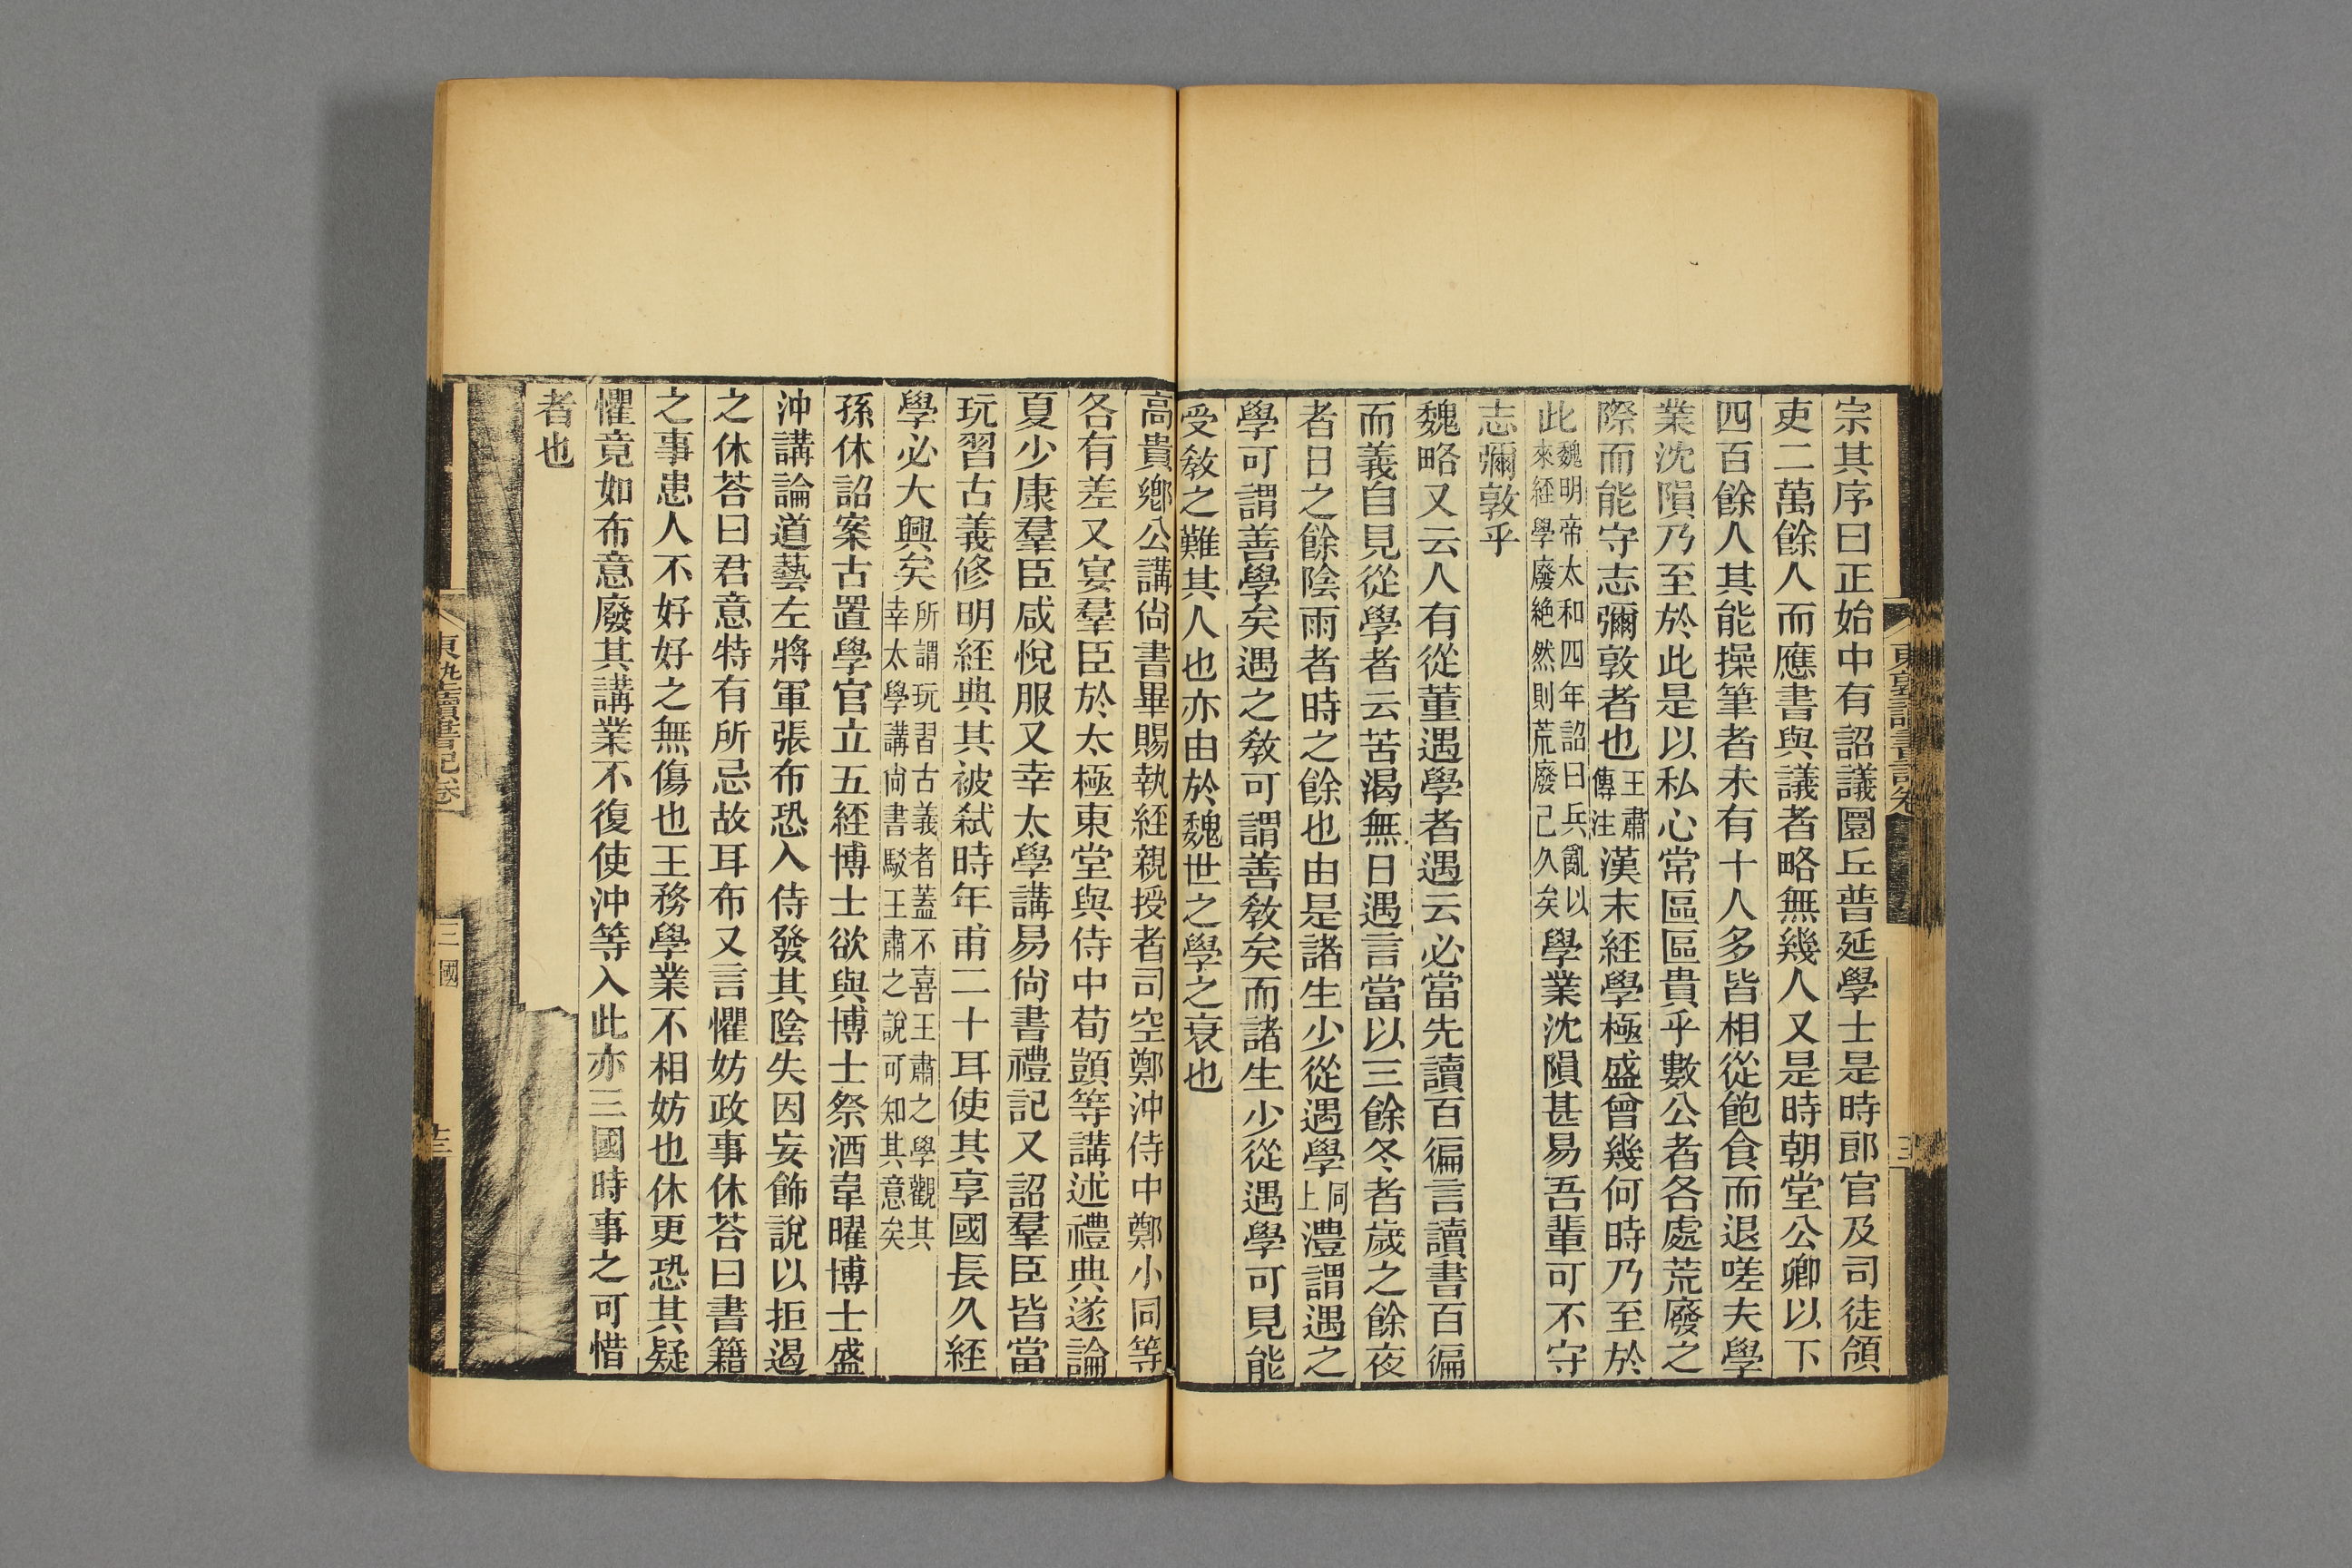 宗其序曰正始中有詔議圜丘普延學士是時郎官及司徒領
吏二萬餘人而應書與議者略無幾人又是時朝堂公卿以下
四百餘人其能操筆者未有十人多皆相從飽食而退嗟夫學
業沈隕乃至於此是以私心常區區貴乎數公者各處荒廢之
際而能守志彌敦者也王肅傳注漢末經學極盛曾幾何時乃至於
此魏明帝太和四年詔曰兵亂以來經學廢絶然則荒廢已久矣學業沈隕甚易吾輩可不守
志彌敦乎
魏略又云人有從董遇學者遇云必當先讀百徧言讀書百徧
而義自見從學者云苦渴無日遇言當以三餘冬者歲之餘夜
者日之餘陰雨者時之餘也由是諸生少從遇學同上澧謂遇之
學可謂善學矣遇之敎可謂善敎矣而諸生少從遇學可見能
受敎之難其人也亦由於魏世之學之衰也
高貴鄕公講尙書畢賜執經親授者司空鄭沖侍中鄭小同等
各有差又宴羣臣於太極東堂與侍中荀顗等講述禮典遂論
夏少康羣臣咸悅服又幸太學講易尙書禮記又詔羣臣皆當
玩習古義修明經典其被弒時年甫二十耳使其享國長久經
學必大興矣所謂玩習古義者蓋不喜王肅之學觀其幸太學講尙書駁王肅之說可知其意矣
孫休詔案古置學官立五經博士欲與博士祭酒韋曜博士盛
沖講論道藝左將軍張布恐入侍發其陰失因妄飾說以拒遏
之休荅曰君意特有所忌故耳布又言懼妨政事休荅曰書籍
之事患人不好好之無傷也王務學業不相妨也休更恐其疑
懼竟如布意廢其講業不復使沖等入此亦三國時事之可惜
者也
東塾讀書記卷
三國